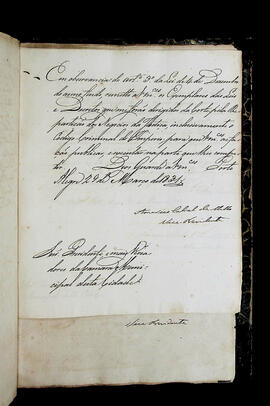 Em observancia do Art.º 3.º da Lei de 4 de Dezembro
do anno findo, remetto a V.mces os Exemplares das Leis
e Decretos, que me forão dirigidos da Corte pela Re-
partição dos Negocios da Justiça, inclusivamente o
Codigo Criminal do Imperio, para que V.mces as fa-
ção publicar, e executar na parte que lhes compe-
te. Deos Guarde a V.mces Porto
Alegre 29 de Março de 1831
Americo Cabral de Mello
Vice Presidente
Snr.s Presidente, e mais Verea-
dores da Camara Muni-
cipal desta Cidade
Vice Presidente